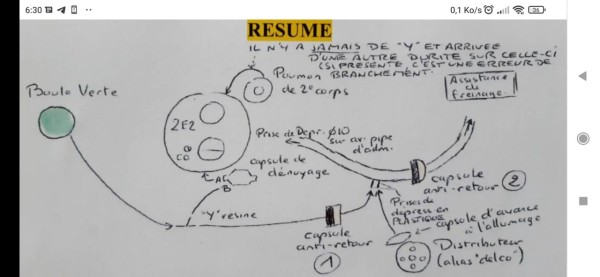 6:30
0,1 Ko/s
36
RESUME
IL N'Y A JAMAIS DE "Y" ET ARRIVEE
D'UNE AUTRE DURITE SUR CELLE-CI
(SI PRESENTE, C'EST UNE ERREUR DE
BRANCHEMENT.
Poumon
de 2° corps
Assistance
de freinage
Boule Verte
2E2
CO
Prise de Depr. Ø10
sur av. pipe
d'adm.
capsule de
dénoyage
A
B
capsule
anti-retour
2
"Y" resine
Prises de
depress en
PLASTIQUE
capsule d'avance
à l'allumage
capsule
anti-retour
1
Distributeur
(alias "delco")